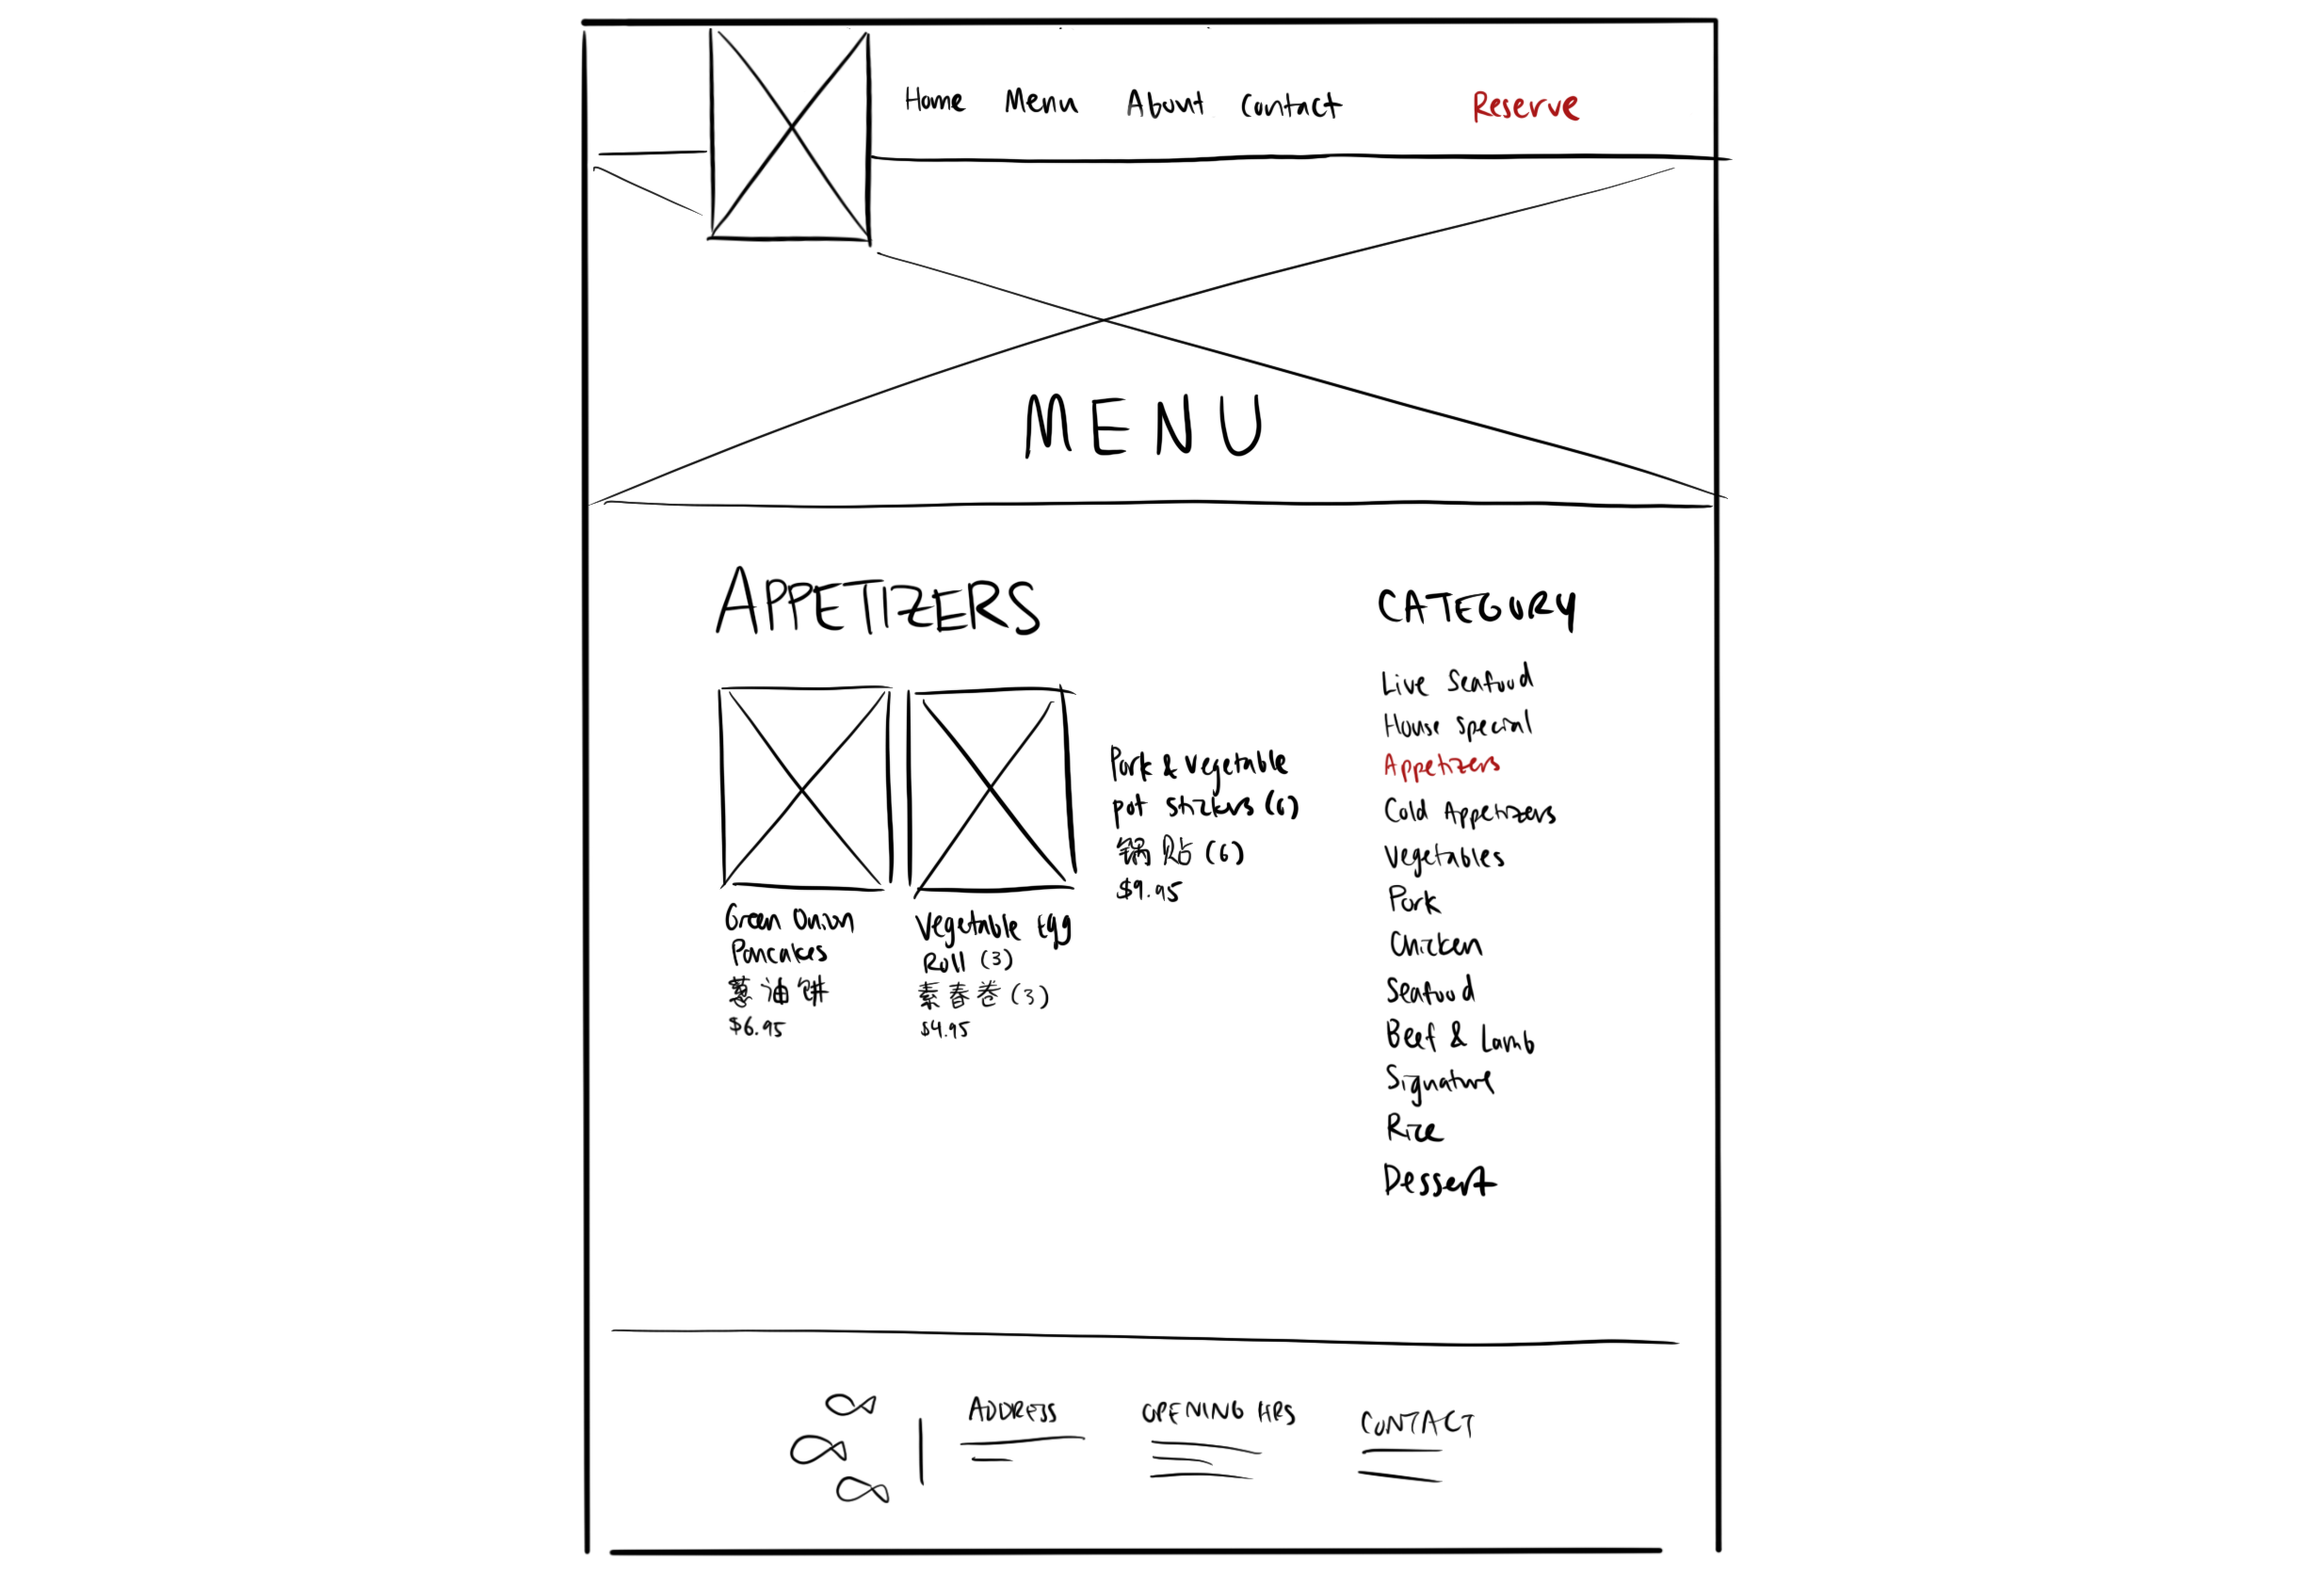 Home Menu About Contact Reserve
MENU
APPETIZERS
Green Onion
Pancakes
蔥油饼
$6.95
Vegetable Egg
Roll (3)
素春卷(3)
$4.95
Pork & Vegetable
pot stickers (6)
锅贴(6)
$9.95
CATEGORY
Live Seafood
House Special
Appetizers
Cold Appetizers
Vegetables
Pork
Chicken
Seafood
Beef & Lamb
Signature
Rice
Dessert
ADDRESS
OPENING HRS
CONTACT